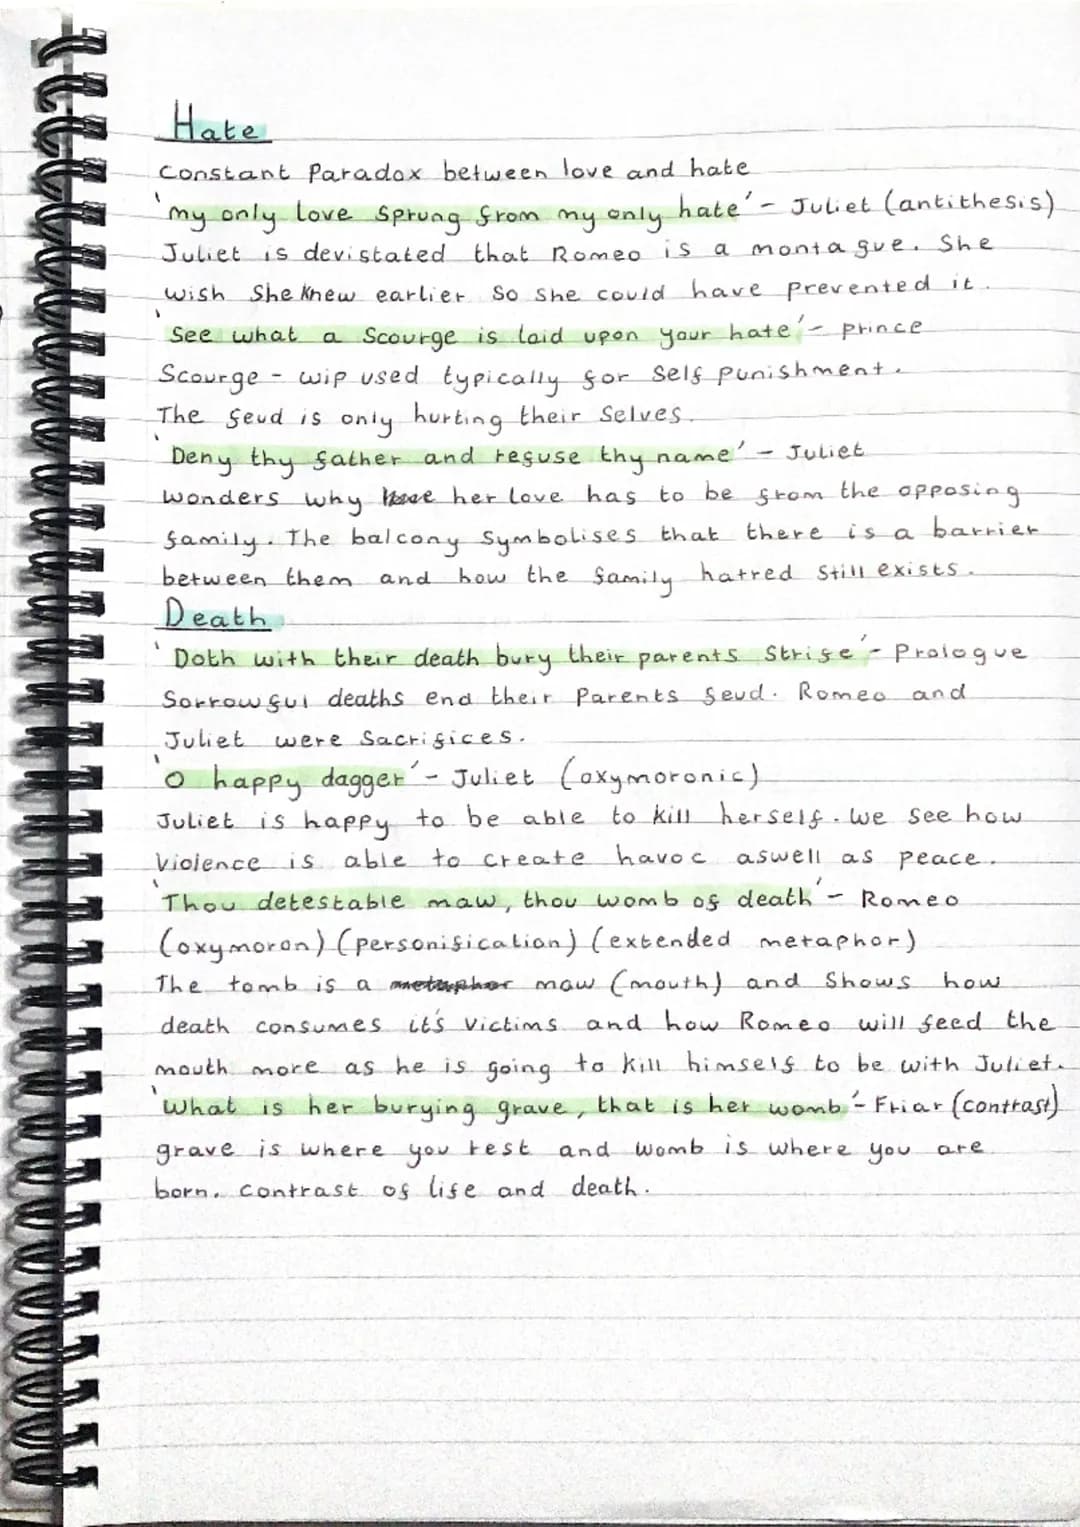 Hate
Constant Paradox between love and hate
'my only love sprung from my only hate' - Juliet (antithesis)
Juliet is devistated that Romeo is a montague. She
wish she knew earlier so she could have prevented it.
'See what a scourge is laid upon your hate' - prince
Scourge - wip used typically for self punishment.
The feud is only hurting their selves.
'Deny thy father and refuse thy name' - Juliet
wonders why her love has to be from the opposing
family. The balcony symbolises that there is a barrier
between them and how the family hatred still exists.
Death
'Doth with their death bury their parents strife' - Prologue
Sorrowful deaths end their parents feud. Romeo and
Juliet were sacrifices.
'O happy dagger' - Juliet (oxymoronic)
Juliet is happy to be able to kill herself. We see how
violence is able to create havoc aswell as peace.
'Thou detestable maw, thou womb of death' - Romeo
(oxymoron) (personification) (extended metaphor)
The tomb is a metaphor maw (mouth) and shows how
death consumes it's victims and how Romeo will feed the
mouth more as he is going to kill himself to be with Juliet.
'What is her burying grave, that is her womb' - Friar (contrast)
grave is where you rest and womb is where you are
born. contrast of life and death.